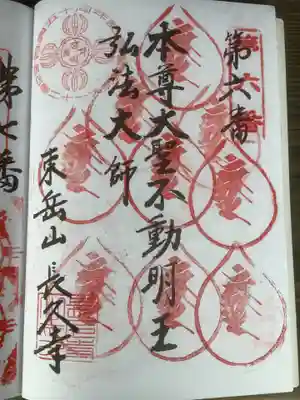 第六番
本尊大聖不動明王
弘法大師
東岳山 長久寺
第七番